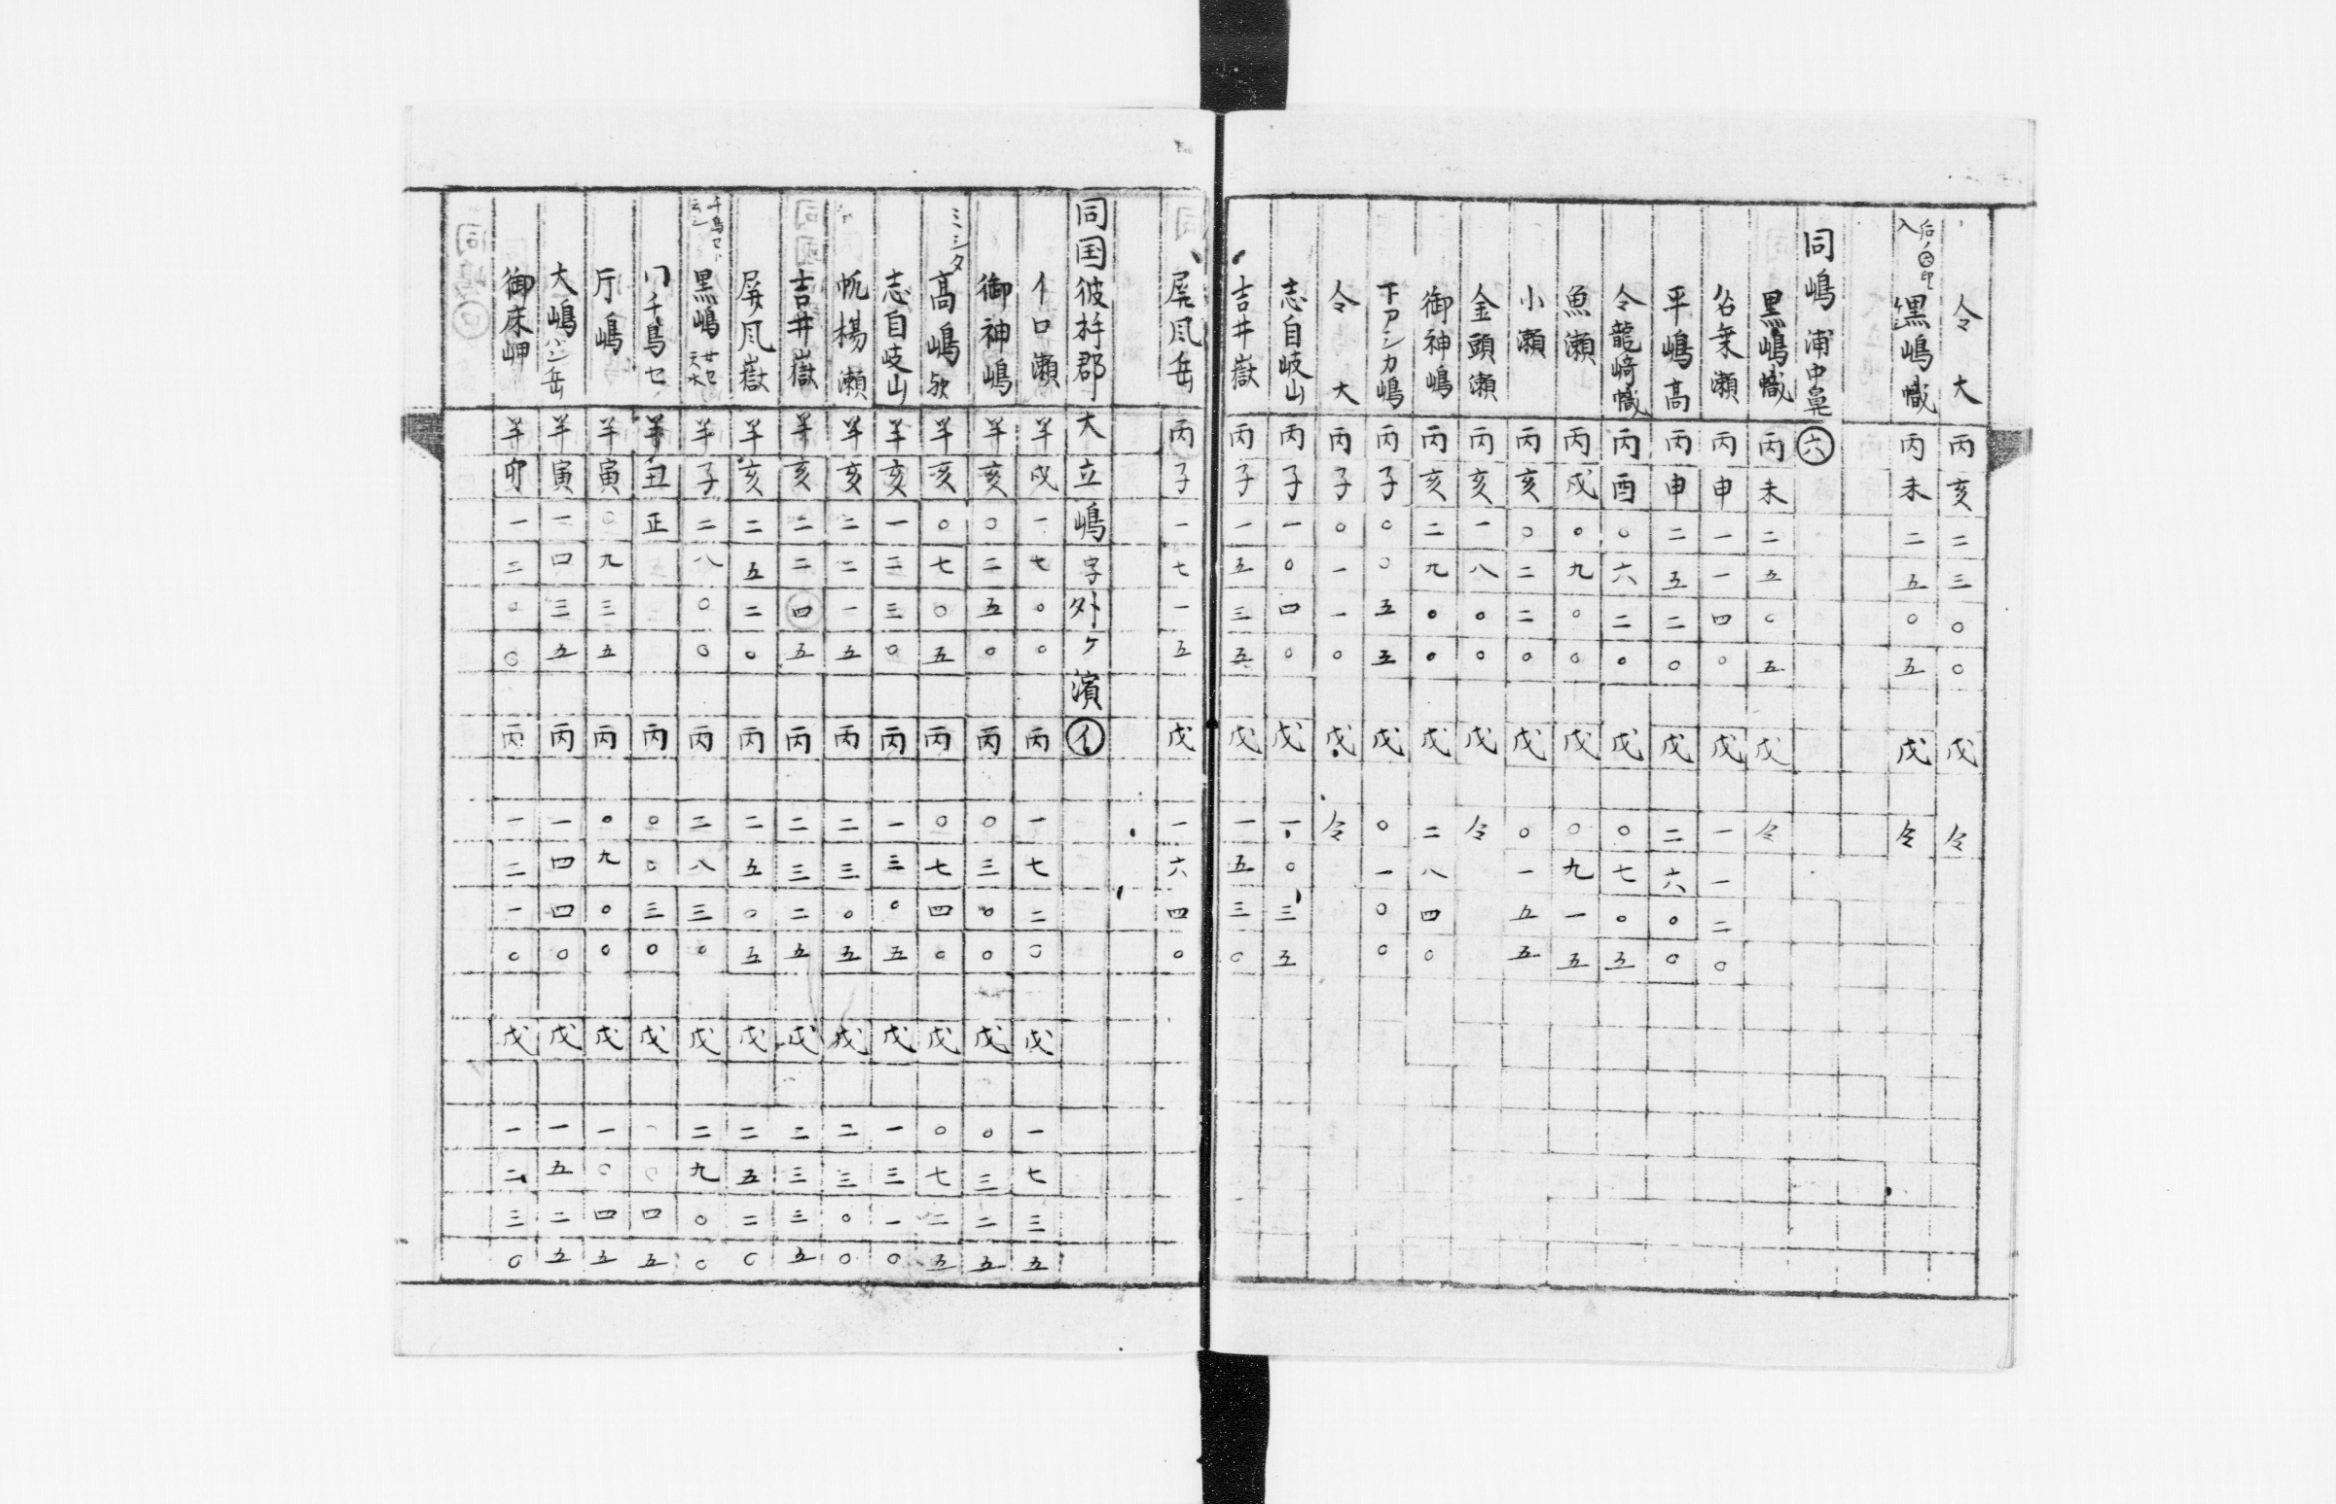 仝大 丙亥二三〇〇 戊 仝
后ノ㊅印入 黒嶋幟 丙未二五〇五 戊 仝
同嶋 浦中鼻 ㊅
黒嶋幟 丙未二五〇五 戊 仝
桒瀬 丙申一一四〇 戊 一一二〇
平嶋高 丙申二五二〇 戊 二六〇〇
仝龍﨑幟 丙酉〇六二〇 戊 〇七〇五
魚瀬 丙戌〇九〇〇 戊 〇九一五
小瀬 丙亥〇二二〇 戊 〇一五五
金頭瀬 丙亥一八〇〇 戊 仝
御神嶋 丙亥二九〇〇 戊 二八四〇
下アシカ嶋 丙子〇〇五五 戊 〇一〇〇
仝大 丙子〇一一〇 戊 仝
志自岐山 丙子一〇四〇 戊 一〇三五
吉井嶽 丙子一五三五 戊 一五三〇
屏風岳 丙子一七一五 戊 一六四〇
同国彼杵郡大立嶋字外ヶ濱 ㋑
イロ瀬 羊戌一七〇〇 丙 一七二〇 戊 一七三五
御神嶋 羊亥〇二五〇 丙 〇三〇〇 戊 〇三二五
ミシタ 髙嶋 羊亥〇七〇五 丙 〇七四〇 戊 〇七二五
志自岐山 羊亥一二三〇 丙 一三〇五 戊 一三一〇
帆楊瀬 羊亥二二一五 丙 二三〇五 戊 二三〇〇
吉井嶽 羊亥二二四五 丙 二三二五 戊 二三三五
屏風嶽 羊亥二五二〇 丙 二五〇五 戊 二五二〇
千鳥セト云シ 黒嶋 羊子二八〇〇 丙 二八三〇 戊 二九〇〇
千鳥セ 羊丑正 丙 〇〇三〇 戊 〇〇四五
庁嶋 羊寅〇九三五 丙 〇九〇〇 戊 一〇四五
大嶋ハンシ岳 羊寅一四三五 丙 一四四〇 戊 一五二五
御床岬 羊卯一二〇〇 丙 一二一〇 戊 一二三〇